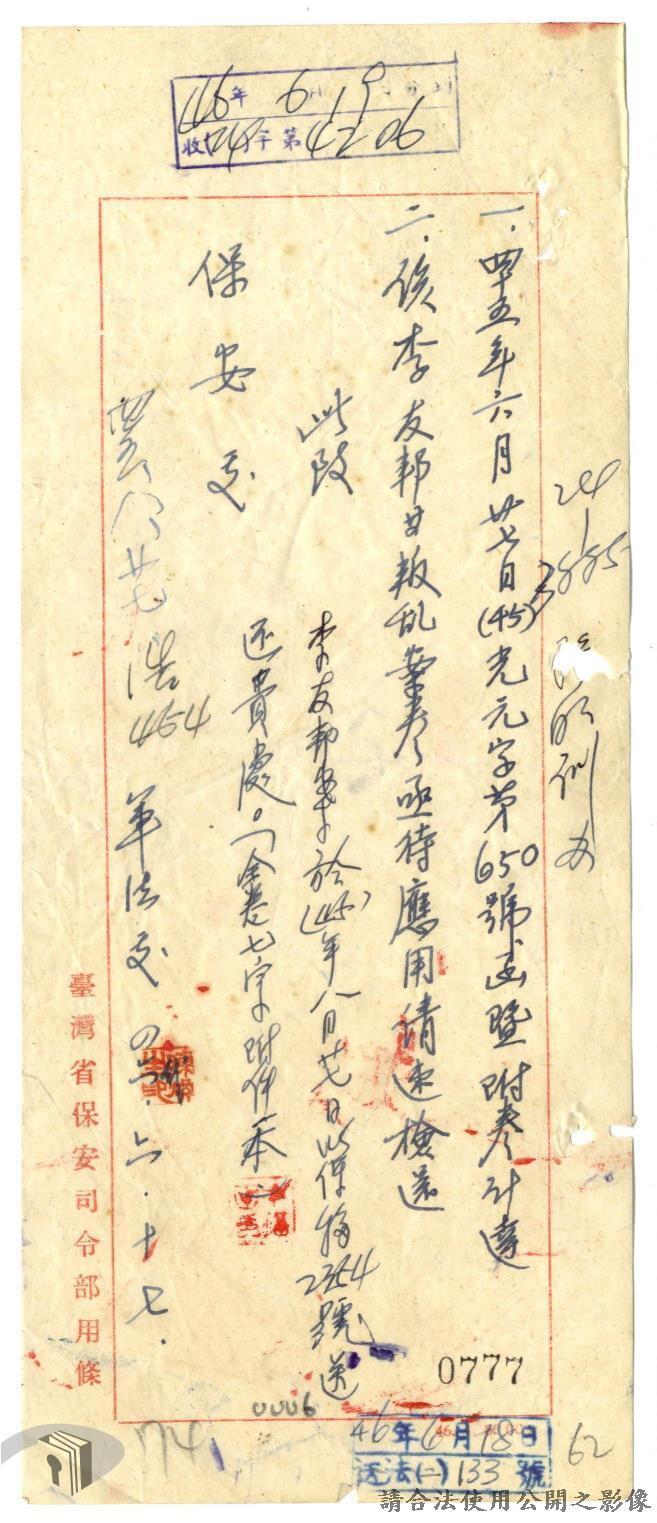 46年6月19日
收 字第4206
一.四五年六月廿七日(45)光元字第650號函暨附卷計達
二.該李友邦甘叛乱案卷亟待應用請速檢還
此致
保安處
李友邦案卷於(45)年八月廿七日以保防2354號送
還貴處。(全卷七宗附件一本)
浩
454
軍法處 四六.六.十七.
臺灣省保安司令部用條
0777
0006
74
62
46年6月18日
送法(二)133號
請合法使用公開之影像